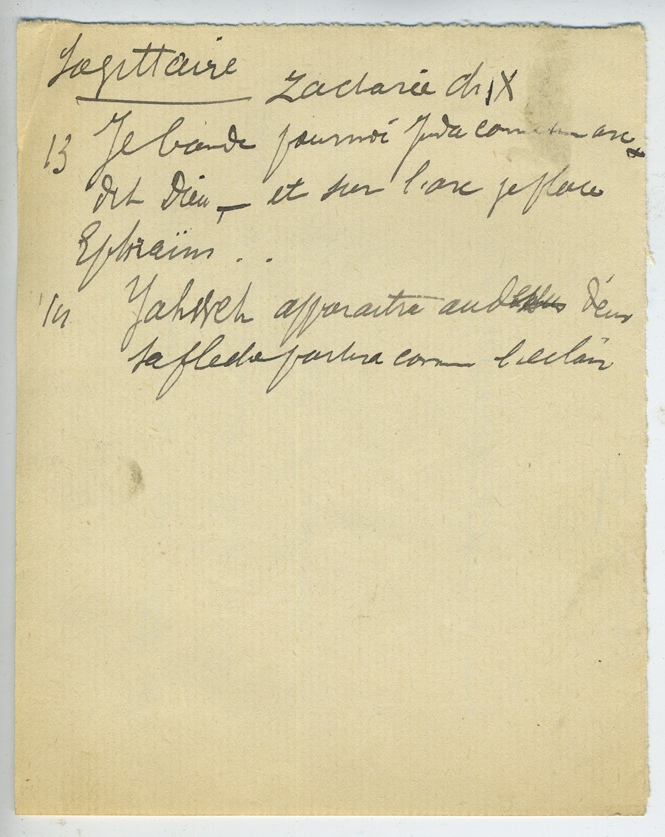 Sagittaire Zacharie ch IX
13 Je bande pour moi Juda comme un arc
dit Dieu, — et sur l'arc je place
Ephraïm . .
14 Yahweh apparaitra au dessus d'eux
sa fleche partira comme l'eclair